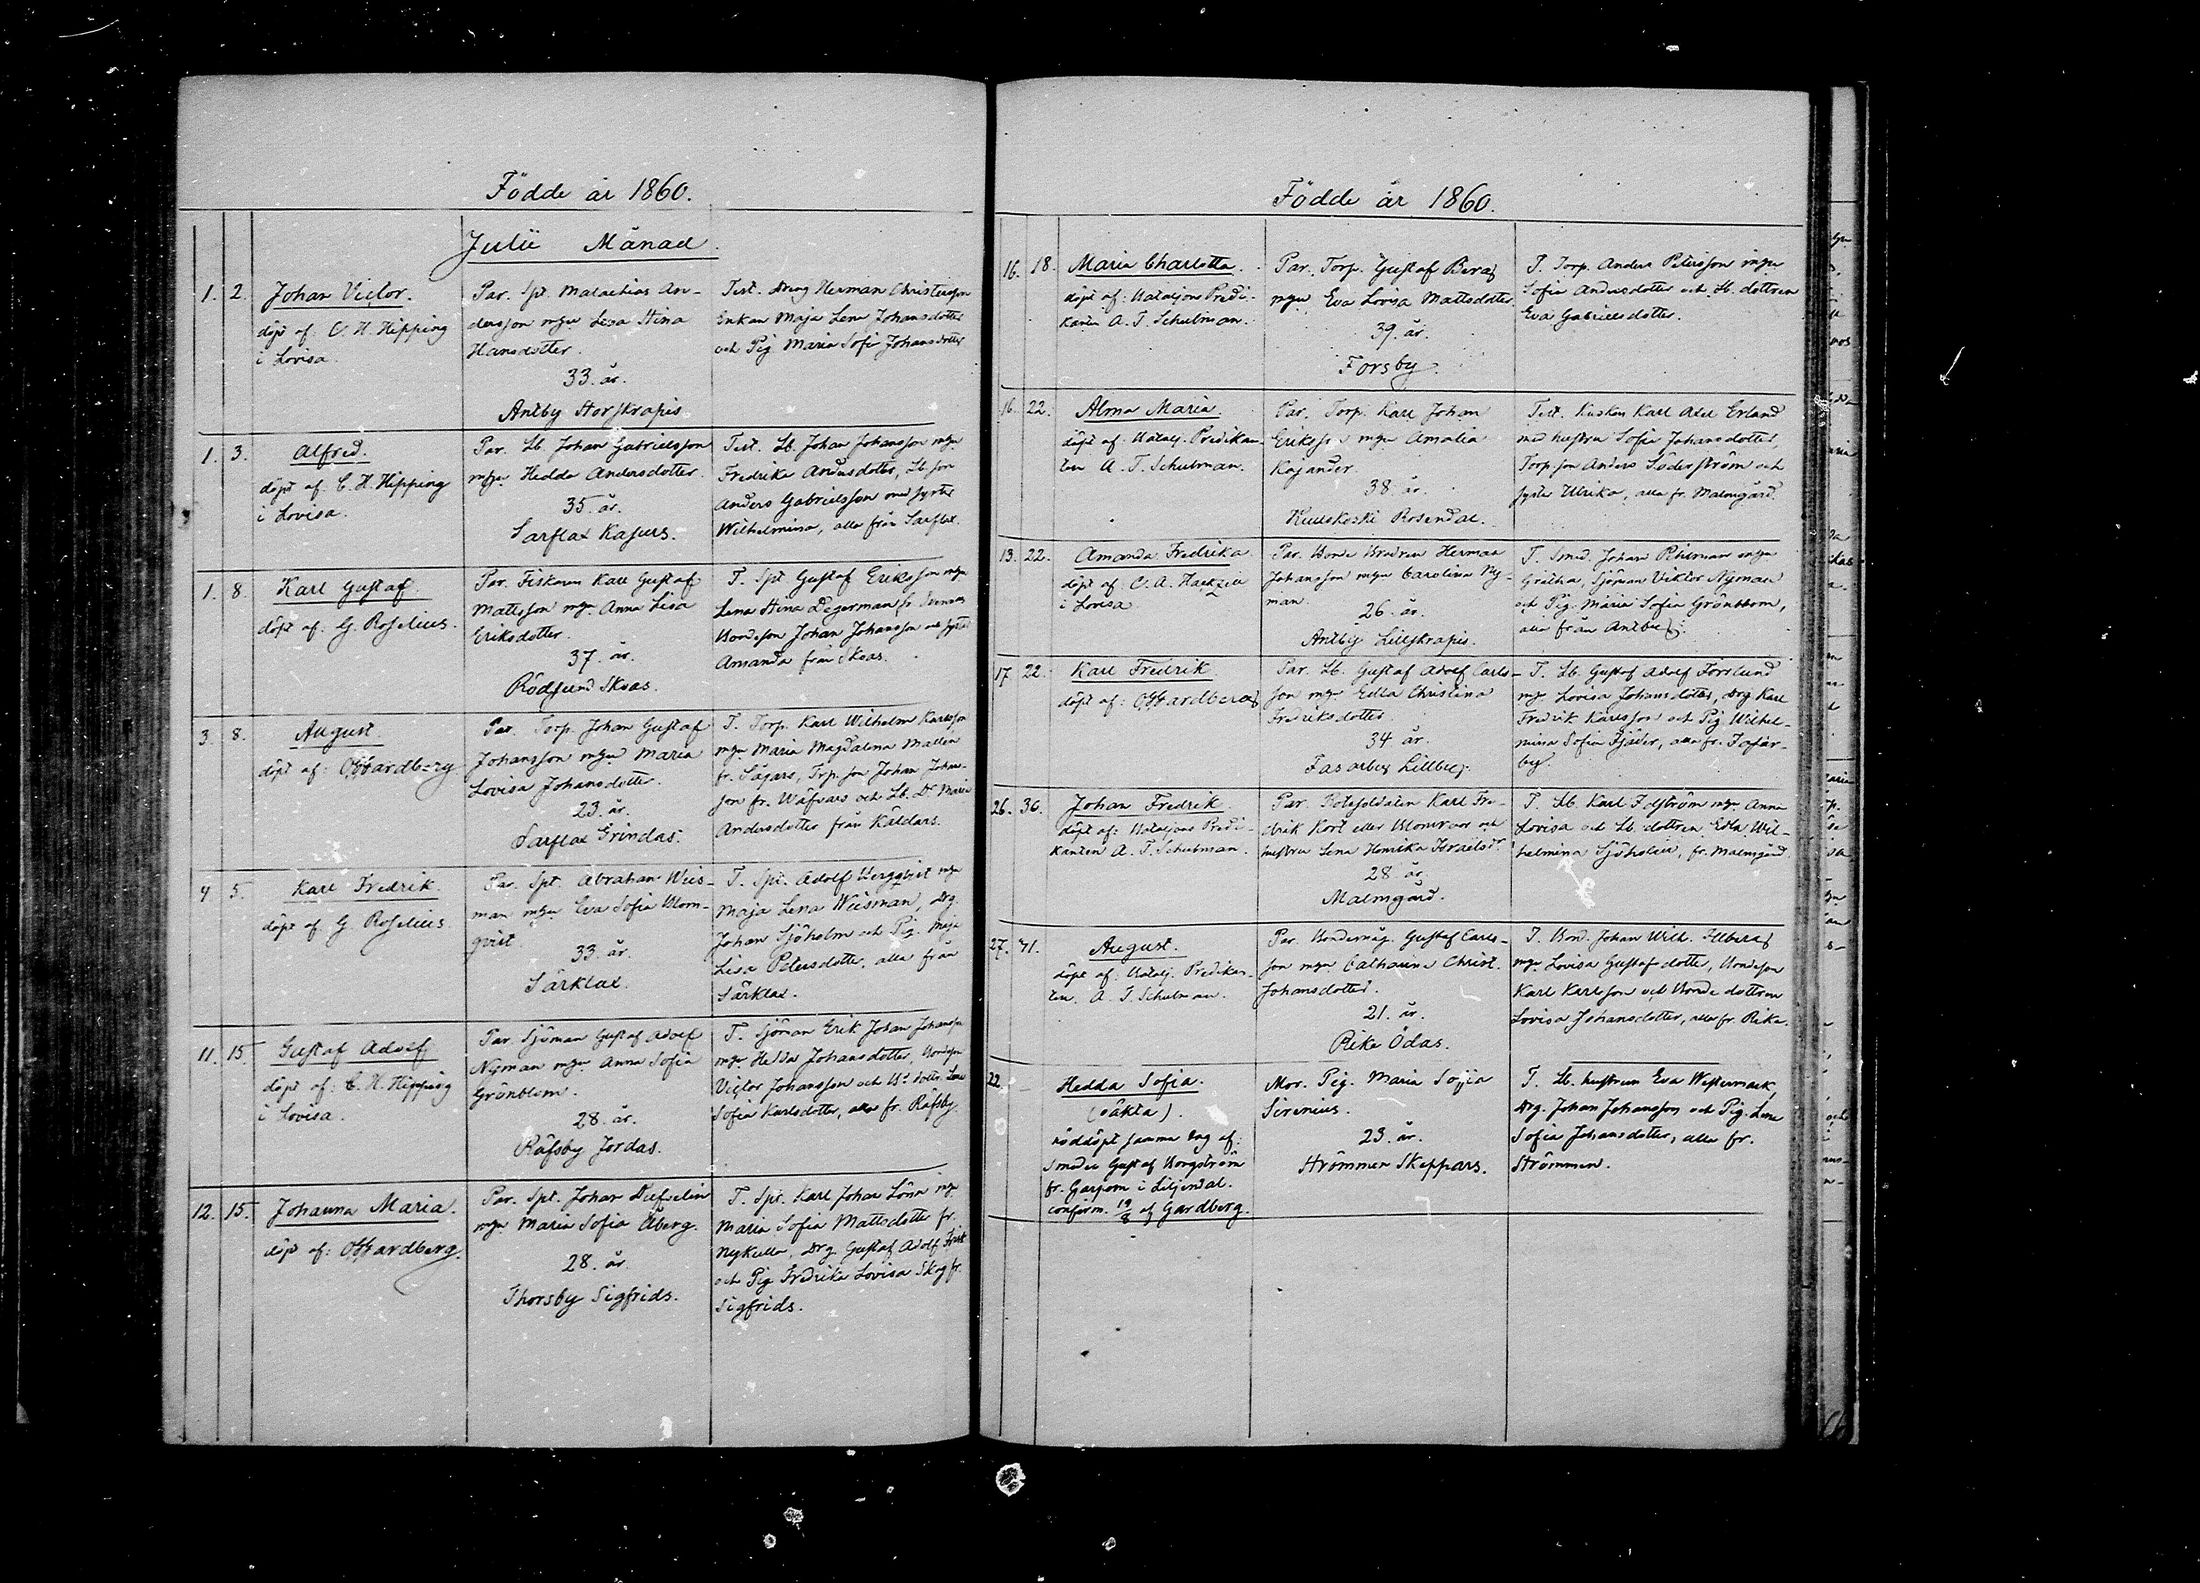 Födde år 1860.
Julii Månad.
1. 2. Johan Victor.
döpt af C. H. Hipping
i Lovisa.
Par. Spt. Malachias An-
dersson mgn Lisa Stina
Hansdotter.
33. år.
Antby Storskrapis
Test. Dreng Herman Christersson
Enkan Maja Lena Johansdotter
och Pig. Maria Sofia Johansdotter
1. 3. Alfred.
döpt af. C. H. Hipping
i Lovisa.
Par. Lb. Johan Gabrielsson
mgn Hedda Andersdotter
35. år.
Sarflax Kajurs.
Test. Lb. Johan Johansson mgn
Fredrika Andersdotter, Lb. son
Anders Gabrielsson med syster
Wilhelmina, alla från Sarflax.
1. 8. Karl Gustaf
döpt af. G. Roselius.
Par. Fiskaren Karl Gustaf
Mattsson mgn Anna Lisa
Eriksdotter.
37. år.
Rödsund Skoas.
T. Spt Gustaf Eriksson mgn
Lena Stina Degerman fr.
Bondeson Johan Johansson och syster
Amanda från Skoas.
3. 8. August.
döpt af: Gardberg
Par. Torp. Johan Gustaf
Johansson mgn Maria
Lovisa Johansdotter.
23. år.
Sarflax Grindas.
T. Torp. Karl Wilhelm Karlsson
mgn Maria Magdalena Mallen
fr. Sågars, Trp. son Johan Johan-
son fr. Wäfvars och Lb. Dr Maria
Andersdotter från Käldars.
4 5. Karl Fredrik.
döpt af G. Roselius.
Par. Spt. Abraham Wiis-
man mgn Eva Sofia Blom-
qvist.
33. år.
Särklax
T. Spt. Adolf Bergqvist mgn
Maja Lena Wiisman, Drg
Johan Sjöholm och Pig. Maja
Lisa Petersdotter, alla från
Särklax.
11. 15. Gustaf Adolf
döpt af: C. H. Hipping
i Lovisa.
Par. Sjöman Gustaf Adolf
Nyman mgn Anna Sofia
Grönblom.
28. år.
Räfsby Jordas.
T. Sjöman Erik Johan Johansson
mgn Hedda Johansdotter, Bondeson
Victor Johansson och Bd. dottr. Lena
Sofia Karlsdotter, alla fr. Räfsby.
12. 15. Johanna Maria.
döpt af: Gardberg.
Par. Spt. Johan Dufvelin
mgn Maria Sofia Åberg.
28. år.
Thorsby Sigfrids.
T. Spt. Karl Johan Lönn mgn
Maria Sofia Mattsdotter fr.
Nykulla, Drg. Gustaf Adolf Frisk
och Pig Fredrika Lovisa Skog fr.
Sigfrids.
Födde år 1860.
16. 18. Maria Charlotta.
döpt af: Bataljons Predi-
kanten A. T. Schulman.
Par. Torp. Gustaf Berg
mgn Eva Lovisa Mattsdotter.
39. år.
Forsby.
T. Torp. Anders Petersson mgn
Sofia Andersdotter och Lb. dottren
Eva Gabrielsdotter.
16. 22. Alma Maria.
döpt af: Batalj. Predikan-
ten A. T. Schulman.
Par. Torp. Karl Johan
Eriksson mgn Amalia
Kajander
38. år.
Kuuskoski Rosendal.
Test. Kusken Karl Axel Erland
med hustru Sofia Johansdotter,
Torp. son Anders Söderström och
syster Ulrika, alla fr. Malmgård.
13. 22. Amanda Fredrika
döpt af: C. A. Hackzell
i Lovisa.
Par. Bonde Brodren Herman
Johansson mgn Carolina Ny-
man.
26. år.
Antby Lillskrapis.
T. Smed. Johan Pihlman mgn
Gretha, Sjöman Viktor Nyman
och Pig. Maria Sofia Grönblom,
alla från Antby.
17. 22. Karl Fredrik
döpt af: Gardberg
Par. Lb. Gustaf Adolf Carls-
son mgn Edla Christina
Fredriksdotter.
34 år.
Fasarby Lillby.
T. Lb. Gustaf Adolf Forslund
mgn Lovisa Johansdotter, Drg Karl
Fredrik Karlsson och Pig. Wilhel-
mina Sofia Fjäder, alla fr. Fasar-
by.
26. 30. Johan Fredrik
döpt af: Bataljons Predi-
kanten A. T. Schulman.
Par. Rotesoldaten Karl Fre-
drik Kort eller Blomroos och
hustru Lena Henrika Israelsdr
28 år.
Malmgård.
T. Lb. Karl Edström mgn Anna
Lovisa och Lb. dottren Edla Wil-
helmina Sjöholm, fr. Malmgård.
27. 71. August.
döpt af Batalj. Predikan-
ten. A. T. Schulman.
Par. Bondemåg. Gustaf Carls-
son mgn Catharina Christ.
Johansdotter.
21. år.
Rike Ödas.
T. Bond. Johan Wilh. Ullberg
mgn Lovisa Gustafsdotter, Bondeson
Karl Karlsson och Bonde dottren
Lovisa Johansdotter, alla fr. Rike.
22. Hedda Sofia.
(oäkta).
nöddöpt samma dag af:
Smeden Gustaf Borgström
fr. Garpom i Liljendal.
confirm. 19/8 af Gardberg.
Mor. Pig. Maria Sofia
Sirenius.
23. år.
Strömmen Skeppars.
T. Lb. hustrun Eva Westermark,
Drg. Johan Johansson och Pig. Lena
Sofia Johansdotter, alla fr.
Strömmen.